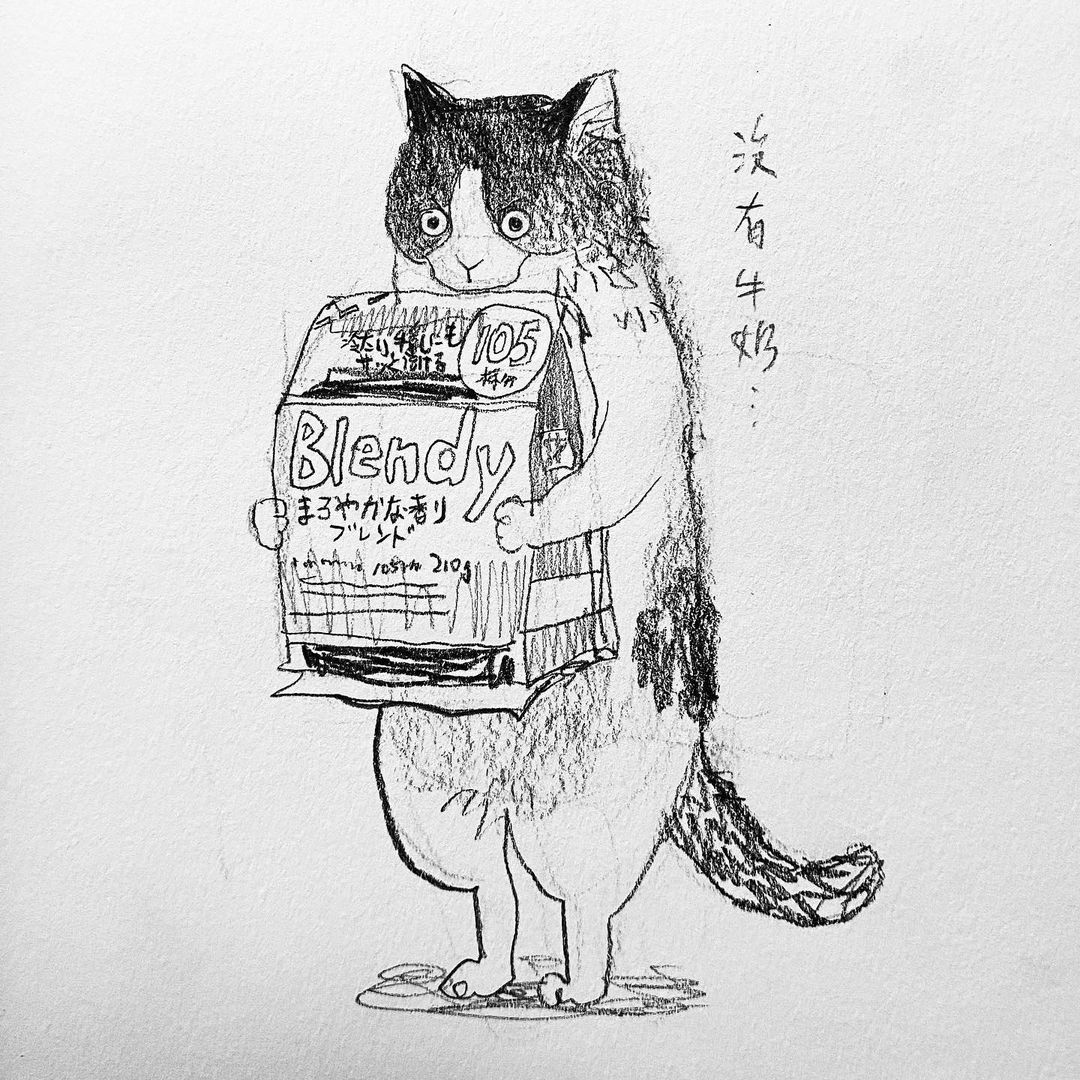 冷たい牛乳にも
サッと溶ける
105
杯分
Blendy
まろやかな香り
ブレンド
210g
没有牛奶...